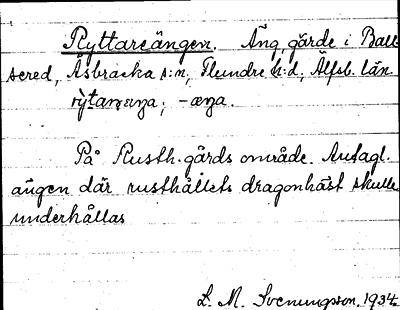 Ryttareängen. Äng, gärde i Ball-
sered, Åsbracka s:n, Flundre h:d, Älfsb. län.
rỳtaræŋa; -æŋa.
På Rusth.gårds område. Antagl.
ängen där rusthållets dragonhäst skulle
underhållas
L. M. Svenungsson. 1934.